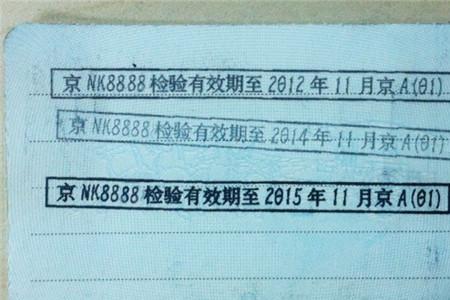 京 NK8888 检验有效期至 2012 年 11 月京 A(01)
京 NK8888 检验有效期至 2014 年 11 月京 A(01)
京 NK8888 检验有效期至 2015 年 11 月京 A(01)